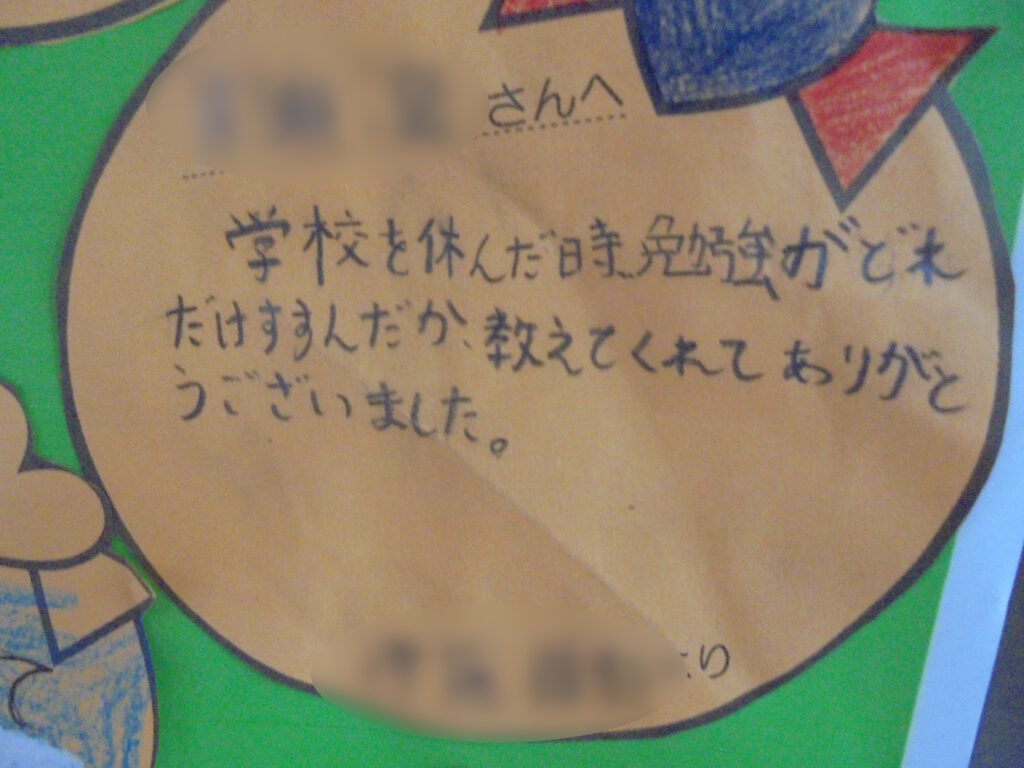 さんへ
学校を休んだ時、勉強がどれ
だけすすんだか、教えてくれてありがと
うございました。
より